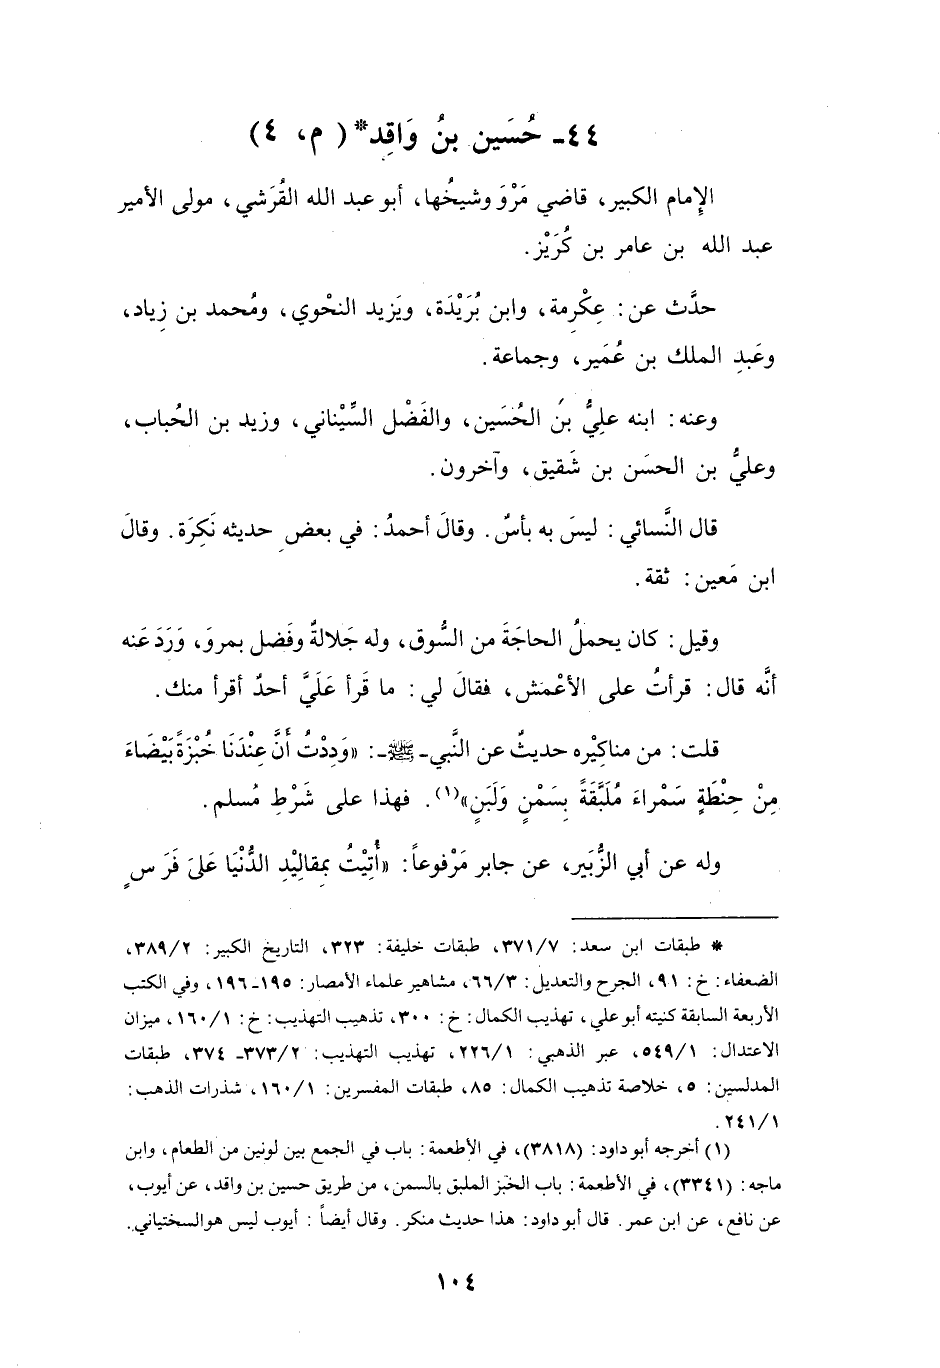 ٤٤- حُسَين بنُ وَاقِد* ( م، ٤)
الإِمام الكبير، قاضي مَرْوَ وشيخُها، أبو عبد الله القُرَشي، مولى الأمير
عبد الله بن عامر بن كُرَيْز.
حدَّث عن: عِكْرِمة، وابن بُرَيْدَة، ويَزيد النحْوي، ومُحمد بن زِياد،
وعَبدِ الملك بن عُمَير، وجماعة.
وعنه: ابنه عليُّ بنُ الحُسَين، والفَضْل السِّيْناني، وزيد بن الحُباب،
وعليُّ بن الحسَن بن شَقيق، وآخرون.
قال النَّسائي: ليسَ به بأسٌ. وقالَ أحمدُ: في بعضِ حديثه نَكِرَة. وقالَ
ابن مَعين: ثقة.
وقيل: كان يحملُ الحاجَةَ من السُّوق، وله جَلالةٌ وفَضل بمروَ، وَرَدَ عَنه
أنَّه قال: قرأتُ على الأعْمَش، فقالَ لي: ما قَرأ عَلَيَّ أحدٌ أقرأ منك.
قلت: من مناكيْره حديثٌ عن النَّبي - ﷺ -: «وَدِدْتُ أَنَّ عِنْدَنَا خُبْزَةً بَيْضَاءَ
مِنْ حِنْطَةٍ سَمْراءَ مُلَبَّقَةً بِسَمْنٍ وَلَبَنٍ»(١). فهذا على شَرْطِ مُسلم.
وله عن أبي الزُّبَير، عن جابر مَرْفوعاً: «أُتِيْتُ بِمقاليْدِ الدُّنْيَا عَلىَ فَرَسٍ
* طبقات ابن سعد: ٣٧١/٧، طبقات خليفة: ٣٢٣، التاريخ الكبير: ٣٨٩/٢،
الضعفاء: خ: ٩١، الجرح والتعديل: ٦٦/٣، مشاهير علماء الأمصار: ١٩٥-١٩٦، وفي الكتب
الأربعة السابقة كنيته أبو علي، تهذيب الكمال: خ: ٣٠٠، تذهيب التهذيب: خ: ١٦٠/١، ميزان
الاعتدال: ٥٤٩/١، عبر الذهبي: ٢٢٦/١، تهذيب التهذيب: ٣٧٣/٢- ٣٧٤، طبقات
المدلسين: ٥، خلاصة تذهيب الكمال: ٨٥، طبقات المفسرين: ١٦٠/١، شذرات الذهب:
٢٤١/١.
(١) أخرجه أبو داود: (٣٨١٨)، في الأطعمة: باب في الجمع بين لونين من الطعام، وابن
ماجه: (٣٣٤١)، في الأطعمة: باب الخبز الملبق بالسمن، من طريق حسين بن واقد، عن أيوب،
عن نافع، عن ابن عمر. قال أبو داود: هذا حديث منكر. وقال أيضاً: أيوب ليس هو السختياني.
١٠٤